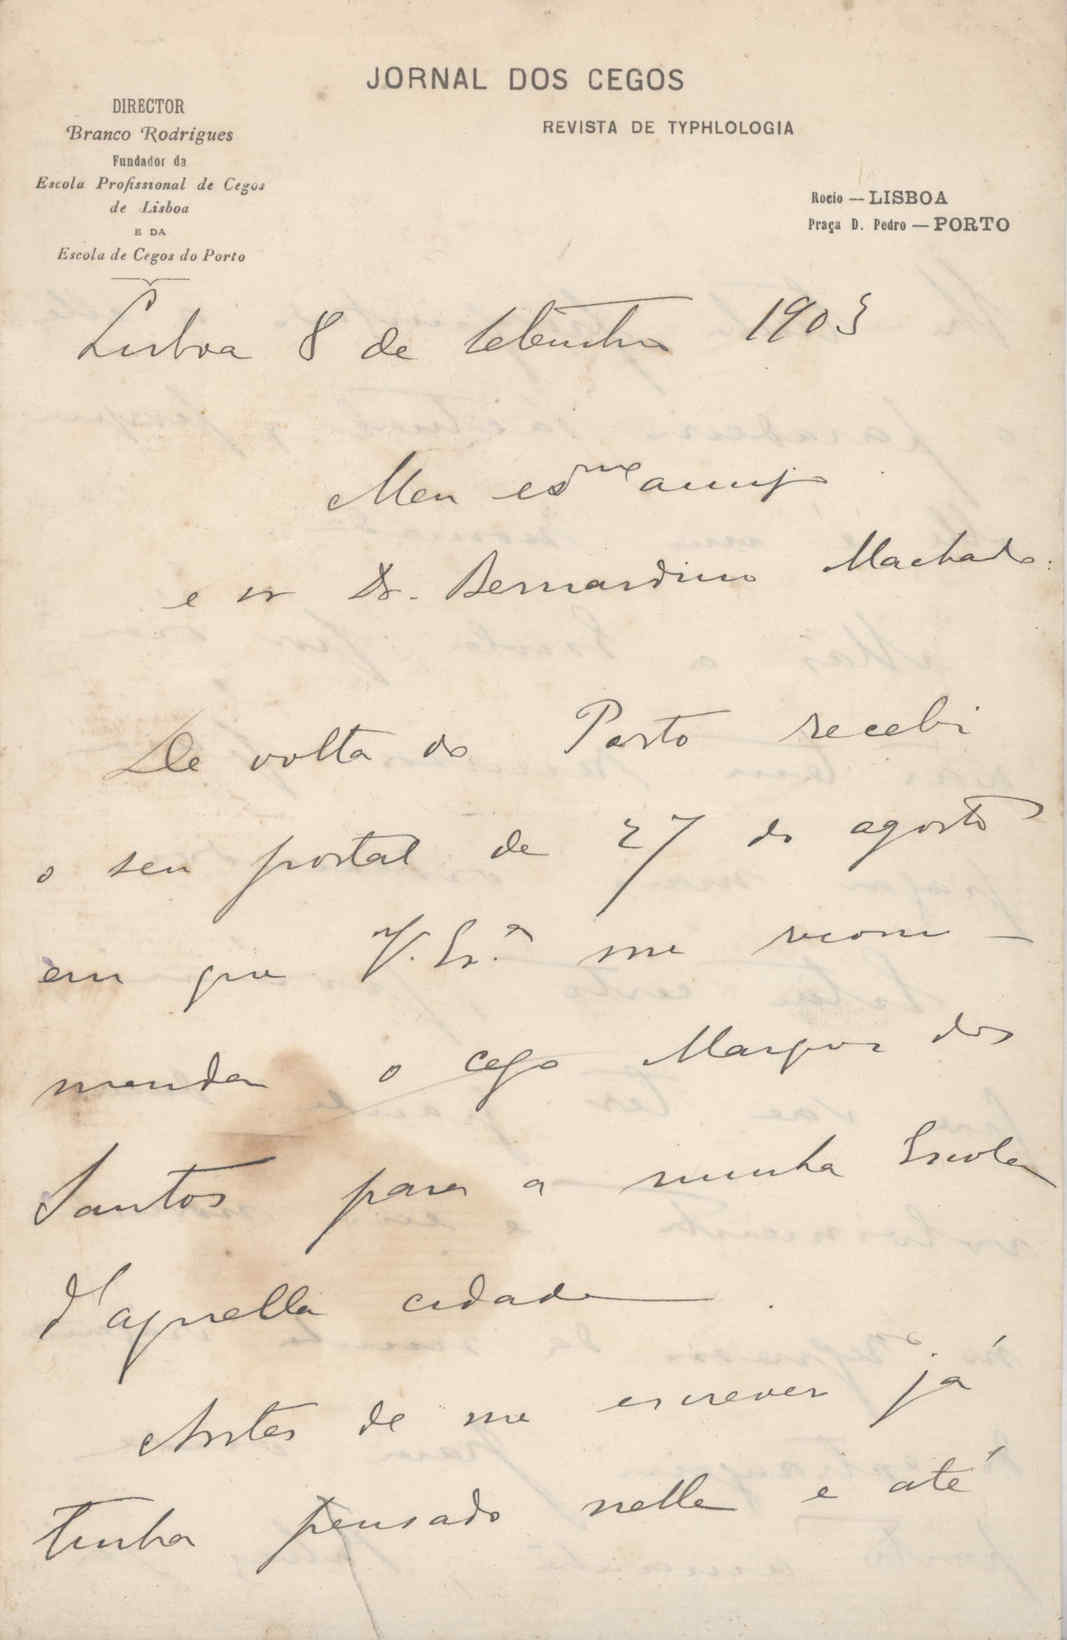 JORNAL DOS CEGOS
REVISTA DE TYPHLOLOGIA
DIRECTOR
Branco Rodrigues
Fundador da
Escola Profissional de Cegos
de Lisboa
E DA
Escola de Cegos do Porto
Rocio — LISBOA
Praça D. Pedro — PORTO
Lisboa 8 de setembro 1903
Meu es^mo amigo
e sr Dr. Bernardino Machado:
De volta do Porto recebi
o seu postal de 27 de agosto
em que V. Ex.ª me recom-
menda o cego Marques dos
Santos para a minha Escola
d'aquella cidade.
Antes de me escrever já
tinha pensado nelle e até